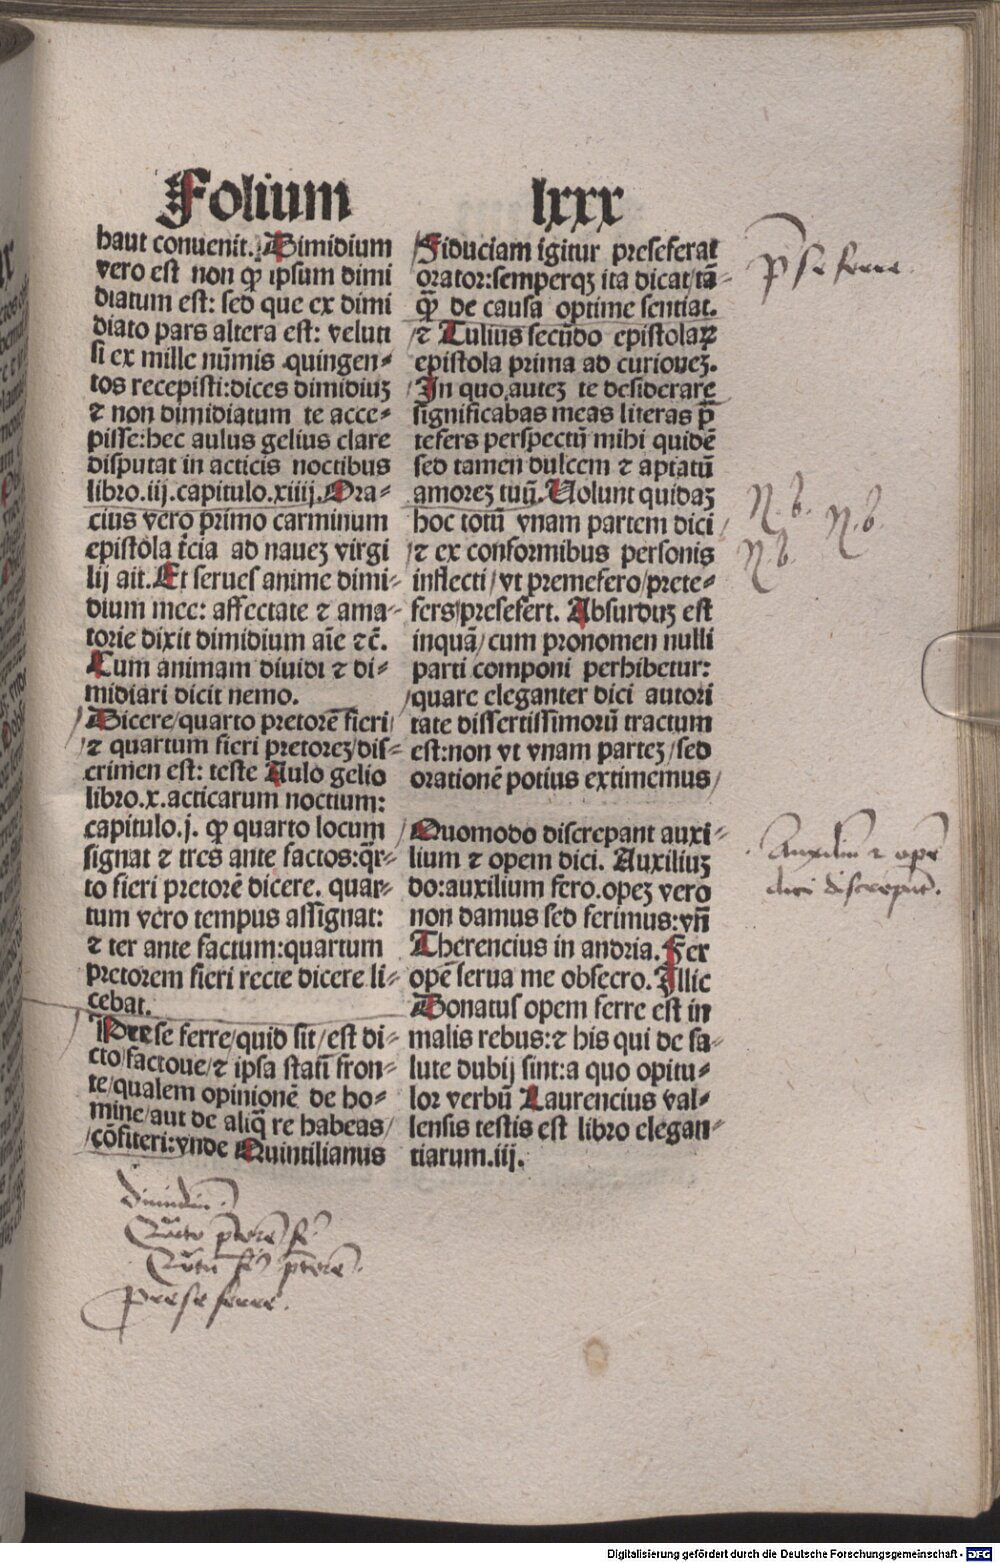 Folium lxxx
haut conuenit. Dimidium
vero est non ꝙ ipsum dimi
diatum est: sed que ex dimi
diato pars altera est: veluti
si ex mille nūmis quingen-
tos recepisti: dices dimidiuꝫ
⁊ non dimidiatum te acce-
pisse: hec aulus gelius clare
disputat in acticis noctibus
libro.iij.capitulo.xiiij. Ora-
cius vero primo carminum
epistola t̄cia ad naueꝫ virgi
lij ait. Et serues anime dimi-
dium mee: affectate ⁊ ama-
torie dixit dimidium aīe ⁊c̄.
Cum animam diuidi ⁊ di-
midiari dicit nemo.
Dicere/quarto pretorē fieri/
⁊ quartum fieri pretoreꝫ/dis-
crimen est: teste Aulo gelio
libro.x.acticarum noctium:
capitulo.j. ꝙ quarto locum
signat ⁊ tres ante factos: q̄r-
to fieri pretorē dicere. quar-
tum vero tempus assignat:
⁊ ter ante factum: quartum
pretorem fieri recte dicere li-
cebat.
Pre se ferre/quid sit/est di-
cto/factoue/⁊ ipsa statī fron-
te/qualem opinionē de ho-
mine/aut de aliq̄ re habeas/
cōfiteri: vnde Quintilianus
Fiduciam igitur preseferat
orator: semperqꝫ ita dicat/tā-
ꝙ̄ de causa optime sentiat.
⁊ Tulius secūdo epistolaꝝ
epistola prima ad curioneꝫ.
In quo auteꝫ te desiderare
significabas meas literas p̄
tefers perspectū mihi quidē
sed tamen dulcem ⁊ aptatū
amoreꝫ tuū. Nolunt quidaꝫ
hoc totū vnam partem dici
⁊ ex conformibus personis
inflecti/vt premefero/prete-
fers/presefert. Absurduꝫ est
inquā/cum pronomen nulli
parti componi perhibetur:
quare eleganter dici autori
tate dissertissimorū tractum
est: non vt vnam parteꝫ/sed
orationē potius extimemus/
Quomodo discrepant auxi-
lium ⁊ opem dici. Auxiliuꝫ
do: auxilium fero. opeꝫ vero
non damus sed ferimus: vn̄
Therencius in andria. Fer
opē serua me obsecro. Illic
Donatus opem ferre est in
malis rebus: ⁊ his qui de sa-
lute dubij sint: a quo opitu-
lor verbū Laurencius val-
lensis testis est libro elegan-
tiarum.iij.
p̄ se ferre.
N. b. N. b.
N. b.
Auxiliū ⁊ opē
dici discrepāt.
dimidiū.
Quarto p̄torē
p̄torē.
Pre se ferre.
Digitalisierung gefördert durch die Deutsche Forschungsgemeinschaft - DFG